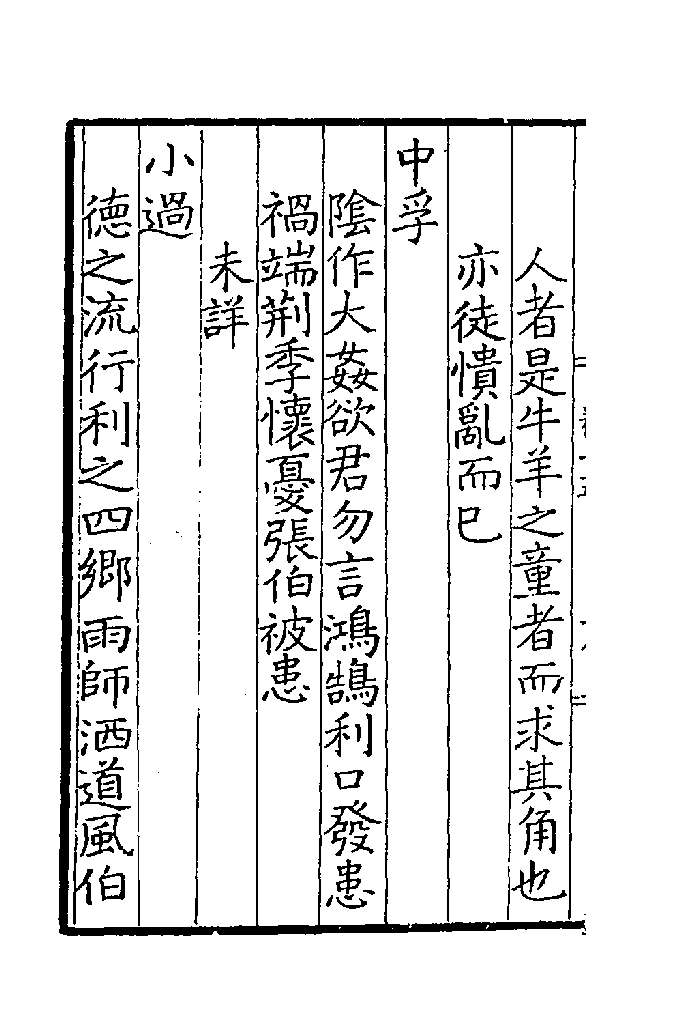 人者是牛羊之童者而求其角也
亦徒憒亂而已
中孚
陰作大姦欲君勿言鴻鵠利口發患
禍端荆季懷憂張伯被患
未詳
小過
德之流行利之四鄉雨師洒道風伯